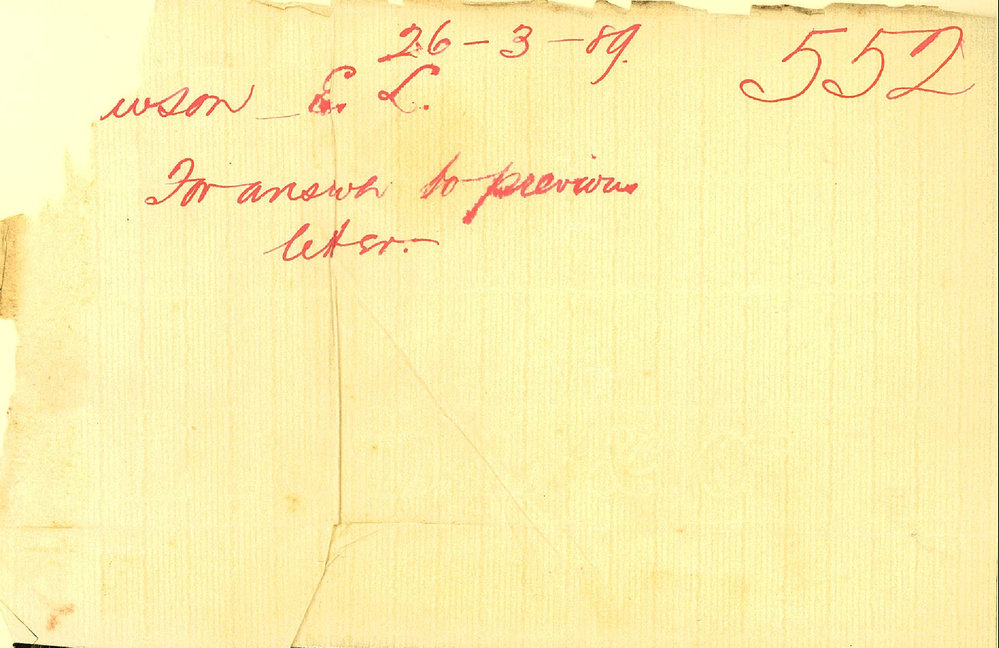 26-3-89. 552
wson - E. L.
For answer to previous
letter.-